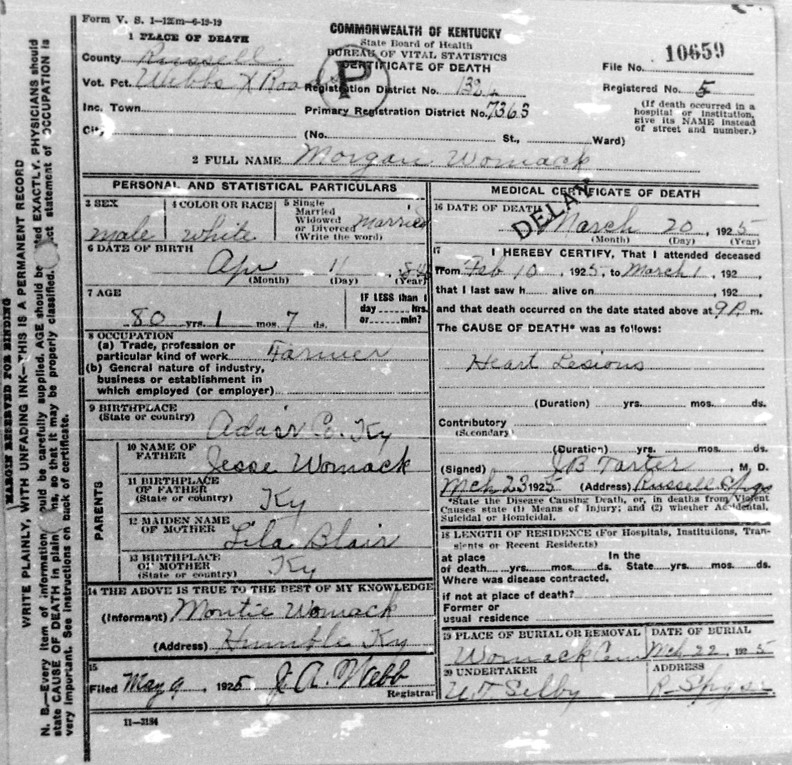 Form V. S. 1—12xm—6-19-19
COMMONWEALTH OF KENTUCKY
State Board of Health
BUREAU OF VITAL STATISTICS
CERTIFICATE OF DEATH
P
1 PLACE OF DEATH
County Russell
Vot. Pct. Webbs X Roads
Inc. Town
City
File No. 10659
Registration District No.
Registered No. 5
Primary Registration District No. 7363
(If death occurred in a hospital or institution, give its NAME instead of street and number.)
(No. St., Ward)
2 FULL NAME Morgan Womack
PERSONAL AND STATISTICAL PARTICULARS
3 SEX male
4 COLOR OR RACE white
5 Single Married Widowed or Divorced (Write the word) Married
6 DATE OF BIRTH
Apr 11
(Month) (Day) (Year)
7 AGE
80 yrs. 1 mos. 7 ds.
IF LESS than 1 day hrs. or min?
8 OCCUPATION
(a) Trade, profession or particular kind of work Farmer
(b) General nature of industry, business or establishment in which employed (or employer)
9 BIRTHPLACE
(State or country) Adair Co. Ky
PARENTS
10 NAME OF FATHER Jesse Womack
11 BIRTHPLACE OF FATHER (State or country) Ky
12 MAIDEN NAME OF MOTHER Lila Blair
13 BIRTHPLACE OF MOTHER (State or country) Ky
14 THE ABOVE IS TRUE TO THE BEST OF MY KNOWLEDGE
(Informant) Montie Womack
(Address) Humble Ky
15
Filed May 9, 1925 J. A. Webb
Registrar
11—3184
MEDICAL CERTIFICATE OF DEATH
DELAY
16 DATE OF DEATH March 20, 1925
(Month) (Day) (Year)
17 I HEREBY CERTIFY, That I attended deceased
from Feb 10, 1925, to March 1, 192
that I last saw h alive on , 192
and that death occurred on the date stated above at 9 P. m.
The CAUSE OF DEATH* was as follows:
Heart Lesions
(Duration) yrs. mos. ds.
Contributory
(Secondary)
(Duration) yrs. mos. ds.
(Signed) J B Tarter, M. D.
Mch 23 1925 (Address) Russell Spgs
*State the Disease Causing Death, or, in deaths from Violent
Causes state (1) Means of Injury; and (2) whether Accidental,
Suicidal or Homicidal.
18 LENGTH OF RESIDENCE (For Hospitals, Institutions, Transients or Recent Residents)
at place of death yrs. mos. ds. In the State yrs. mos. ds.
Where was disease contracted,
if not at place of death?
Former or
usual residence
19 PLACE OF BURIAL OR REMOVAL
Womack Cem
DATE OF BURIAL
Mch 22, 1925
20 UNDERTAKER
Selby
ADDRESS
R. Spgs.
MARGIN RESERVED FOR BINDING
WRITE PLAINLY, WITH UNFADING INK—THIS IS A PERMANENT RECORD
N. B.—Every item of information should be carefully supplied. AGE should be stated EXACTLY. PHYSICIANS should
state CAUSE OF DEATH in plain terms, so that it may be properly classified. Exact statement of OCCUPATION is
very important. See instructions on back of certificate.